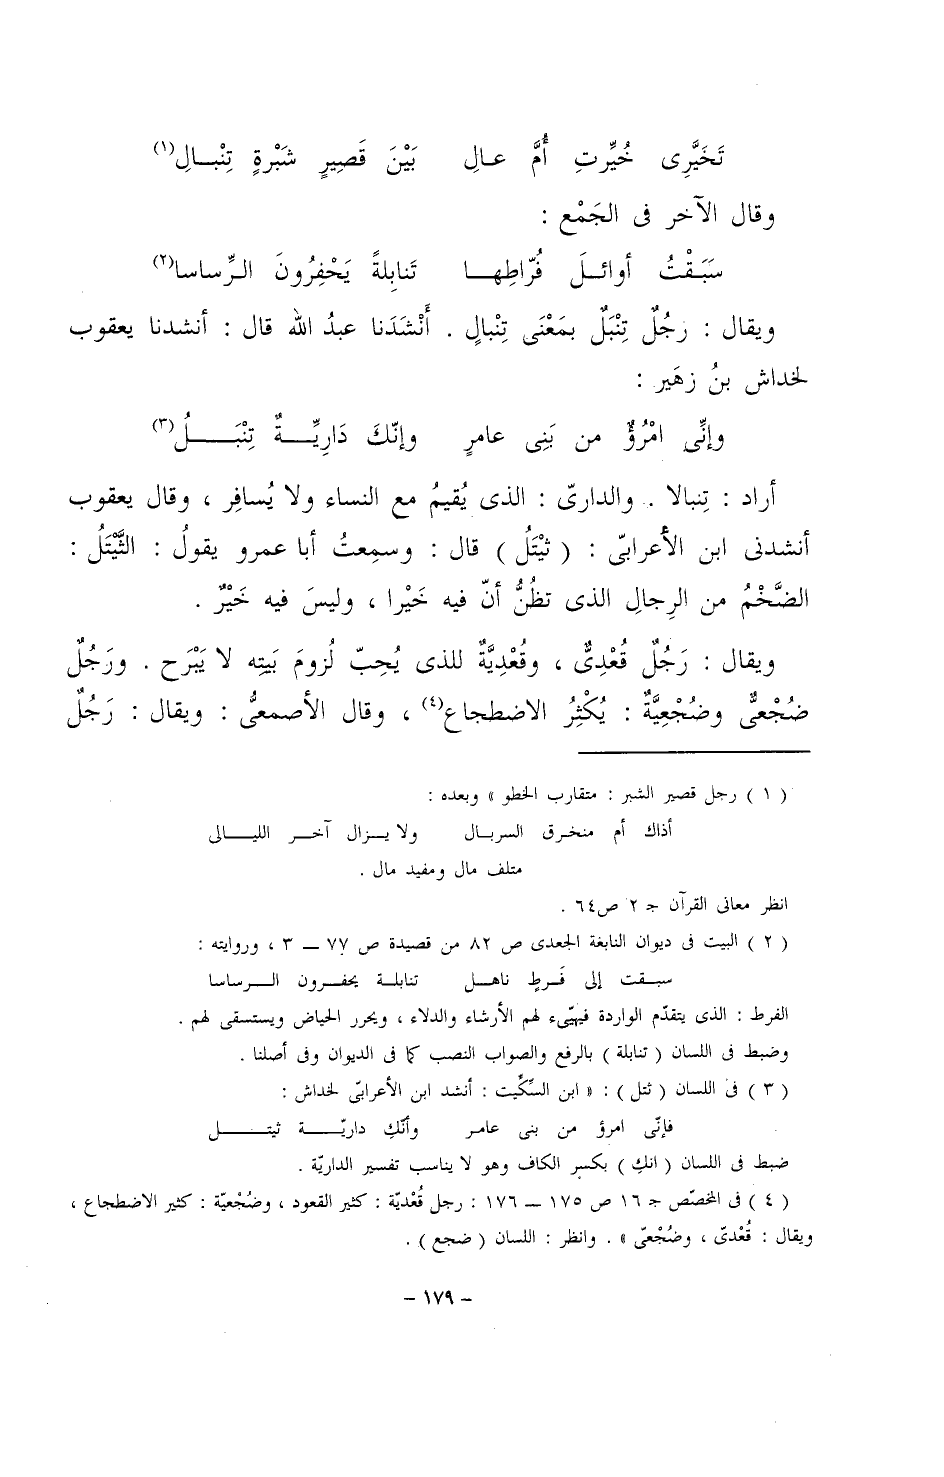 تَخَيَّرِى خُيِّرتِ أُمَّ عالِ بَيْنَ قَصِيرٍ شَبْرةٍ تِنْبـالِ(١)
وقال الآخر فى الجَمْع :
سَبَقْتُ أوائـلَ فُرّاطِهـا تَنابِلةً يَحْفِرُونَ الرِّساسا(٢)
ويقال : رجُلٌ تِنْبَلٌ بمَعْنَى تِنْبالٍ . أَنْشَدَنا عبدُ الله قال : أنشدنا يعقوب
لخداش بنُ زهَير :
وإنِّى امْرُؤٌ من بَنِى عامرٍ وإنّكَ دَارِيِّـــةٌ تِنْبَـــلُ(٣)
أراد : تِنبالا . والدارىّ : الذى يُقيمُ مع النساء ولا يُسافِر ، وقال يعقوب
أنشدنى ابن الأعرابىّ : ( ثيْتَلُ ) قال : وسمِعتُ أبا عمرو يقولُ : الثَّيْتَلُ :
الضَّخْمُ من الرِجالِ الذى تظُنُّ أنّ فيه خَيْرا ، وليسَ فيه خَيْرٌ .
ويقال : رَجُلٌ قُعْدِىٌّ ، وقُعْدِيَّةٌ للذى يُحِبّ لُزومَ بَيتِه لا يَبْرَح . ورَجُلٌ
ضُجْعىٌّ وضُجْعِيَّةٌ : يُكْثِرُ الاضطجاع(٤) ، وقال الأصمعىُّ : ويقال : رَجُلٌ
( ١ ) رجل قصير الشبر : متقارب الخطو » وبعده :
أذاك أم منخرق السربال ولا يـزال آخـر الليـالى
متلف مال ومفيد مال .
انظر معانى القرآن جـ ٢ ص٦٤ .
( ٢ ) البيت فى ديوان النابغة الجعدى ص ٨٢ من قصيدة ص ٧٧ ـ ٣ ، وروايته :
سبقـت إلى فَـرطٍ ناهـل تنابلـة يحفـرون الـرساسا
الفرط : الذى يتقدّم الواردة فيهّيىء لهم الأرشاء والدلاء ، ويحرر الحياض ويستسقى لهم .
وضبط فى اللسان ( تنابلة ) بالرفع والصواب النصب كما فى الديوان وفى أصلنا .
( ٣ ) فى اللسان ( ثتل ) : « ابن السِّكِّيت : أنشد ابن الأعرابىّ لخداش :
فإنّى امرؤ من بنى عامر وأنّكِ داريّـــة ثيتـــل
ضبط فى اللسان ( انكِ ) بكسر الكاف وهو لا يناسب تفسير الداريّة .
( ٤ ) فى المخصّص جـ ١٦ ص ١٧٥ ـ ١٧٦ : رجل قُعْديّة : كثير القعود ، وضُجْعيّة : كثير الاضطجاع ،
ويقال : قُعْدىّ ، وضُجْعىّ » . وانظر : اللسان ( ضجع ) .
– ١٧٩ –